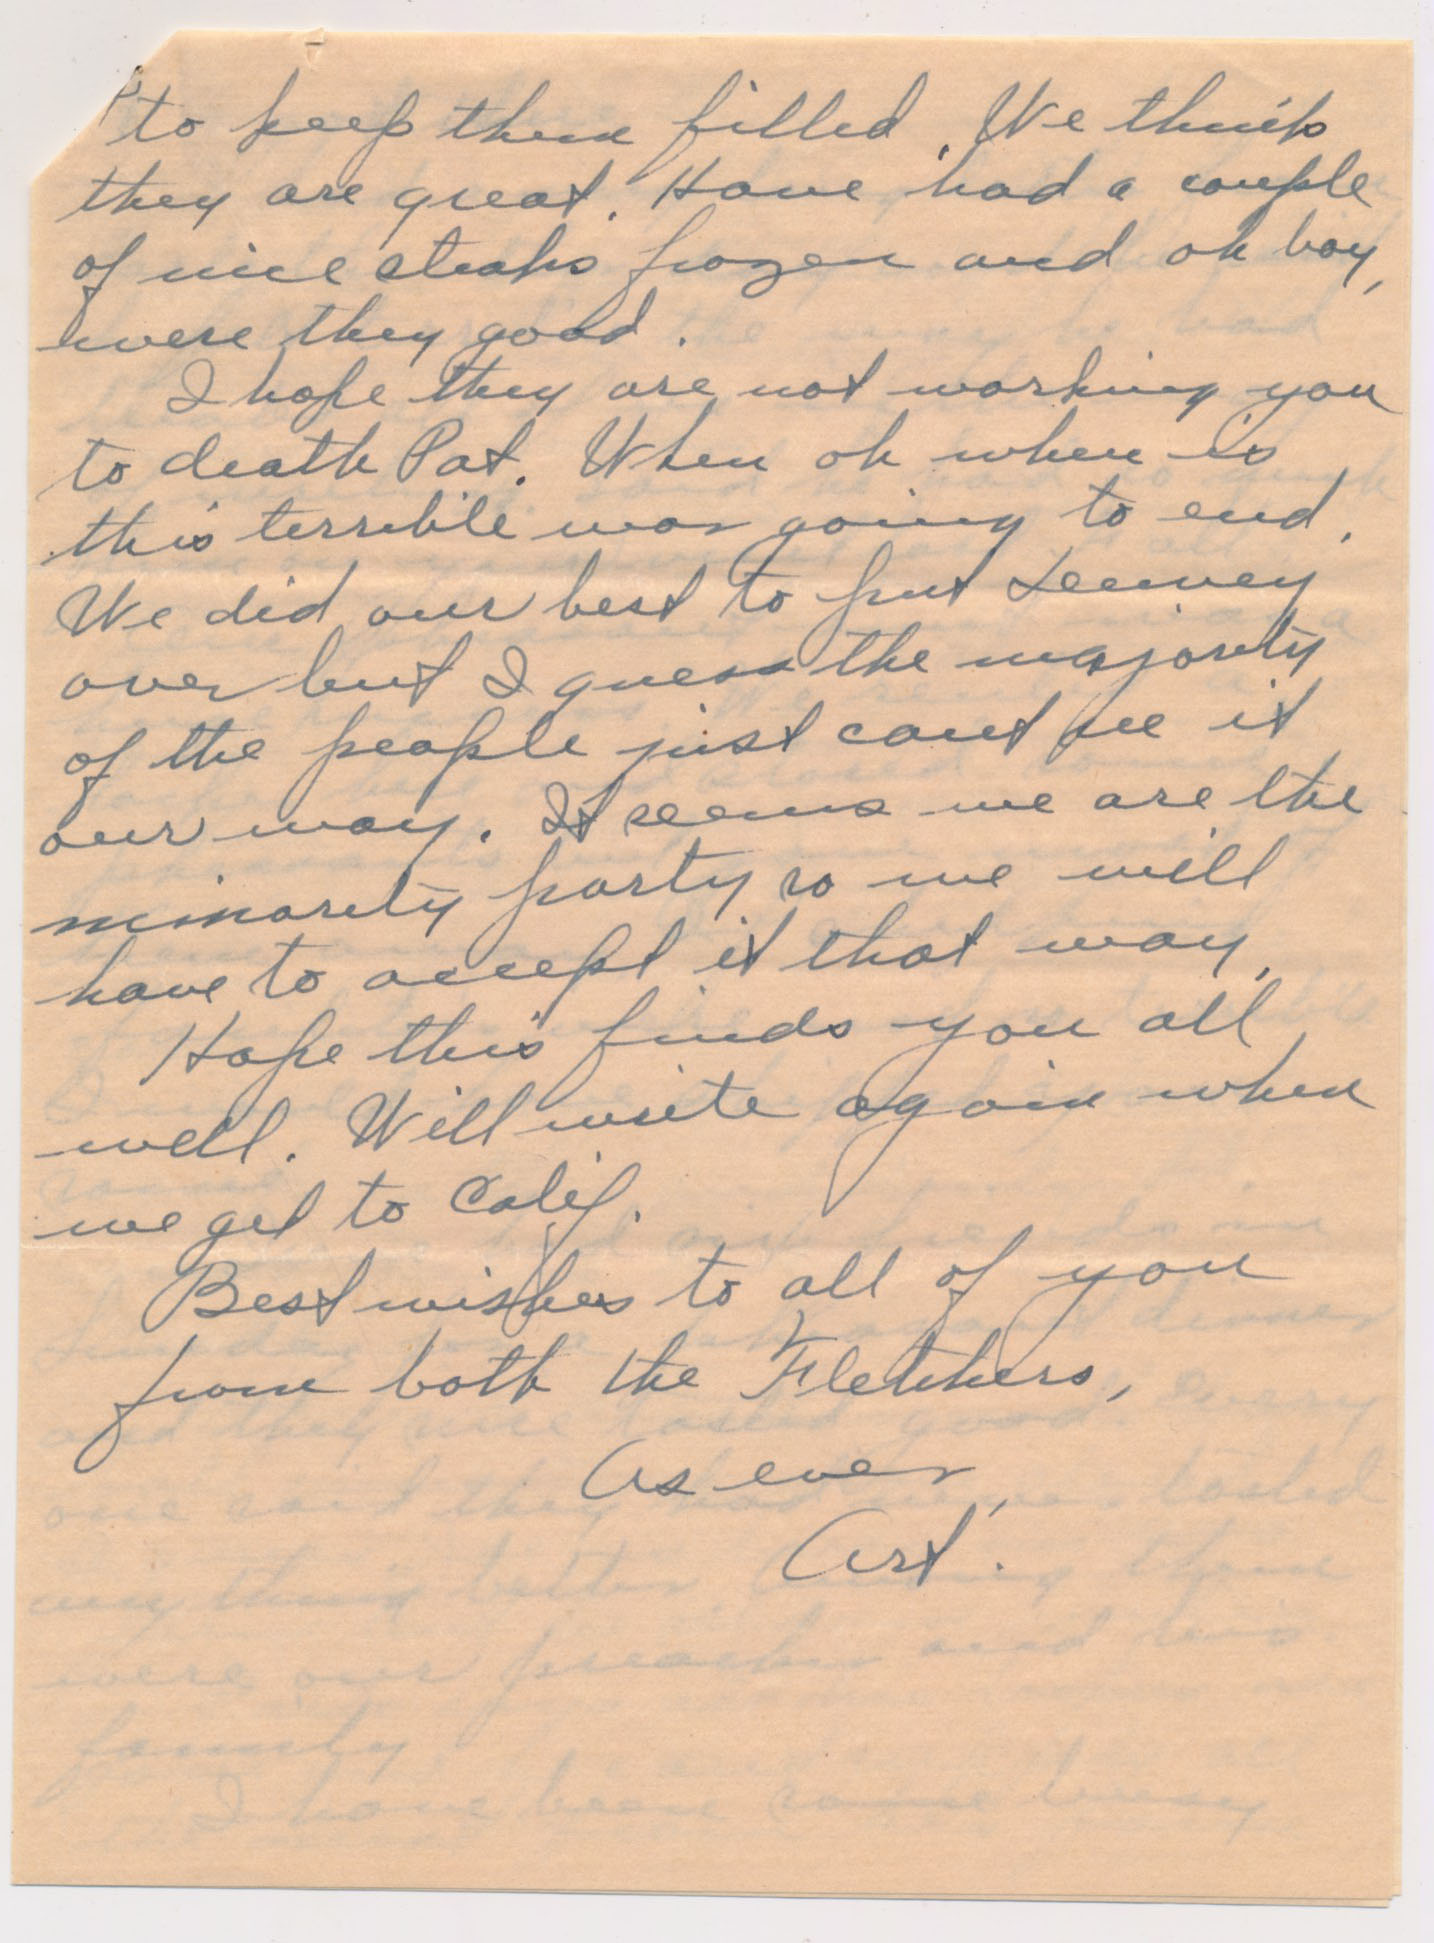 to keep them filled. We think
they are great. Have had a couple
of nice steaks frozen and oh boy,
were they good.
I hope they are not working you
to death Pat. When oh when is
this terrible war going to end.
We did our best to put Deewey
over but I guess the majority
of the people just cant see it
our way. It seems we are the
minority party so we will
have to accept it that way.
Hope this finds you all
well. Will write again when
we get to Calif.
Best wishes to all of you
from both the Fletchers,
As ever,
Art.